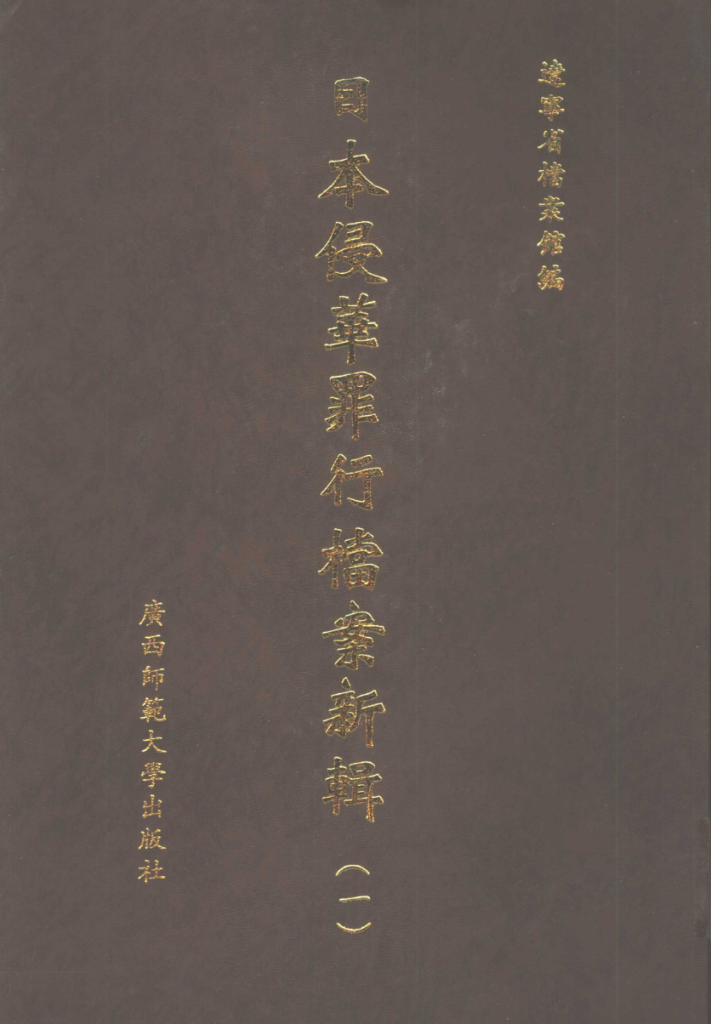 遼寧省檔案館編
日本侵華罪行檔案新輯（一）
廣西師範大學出版社